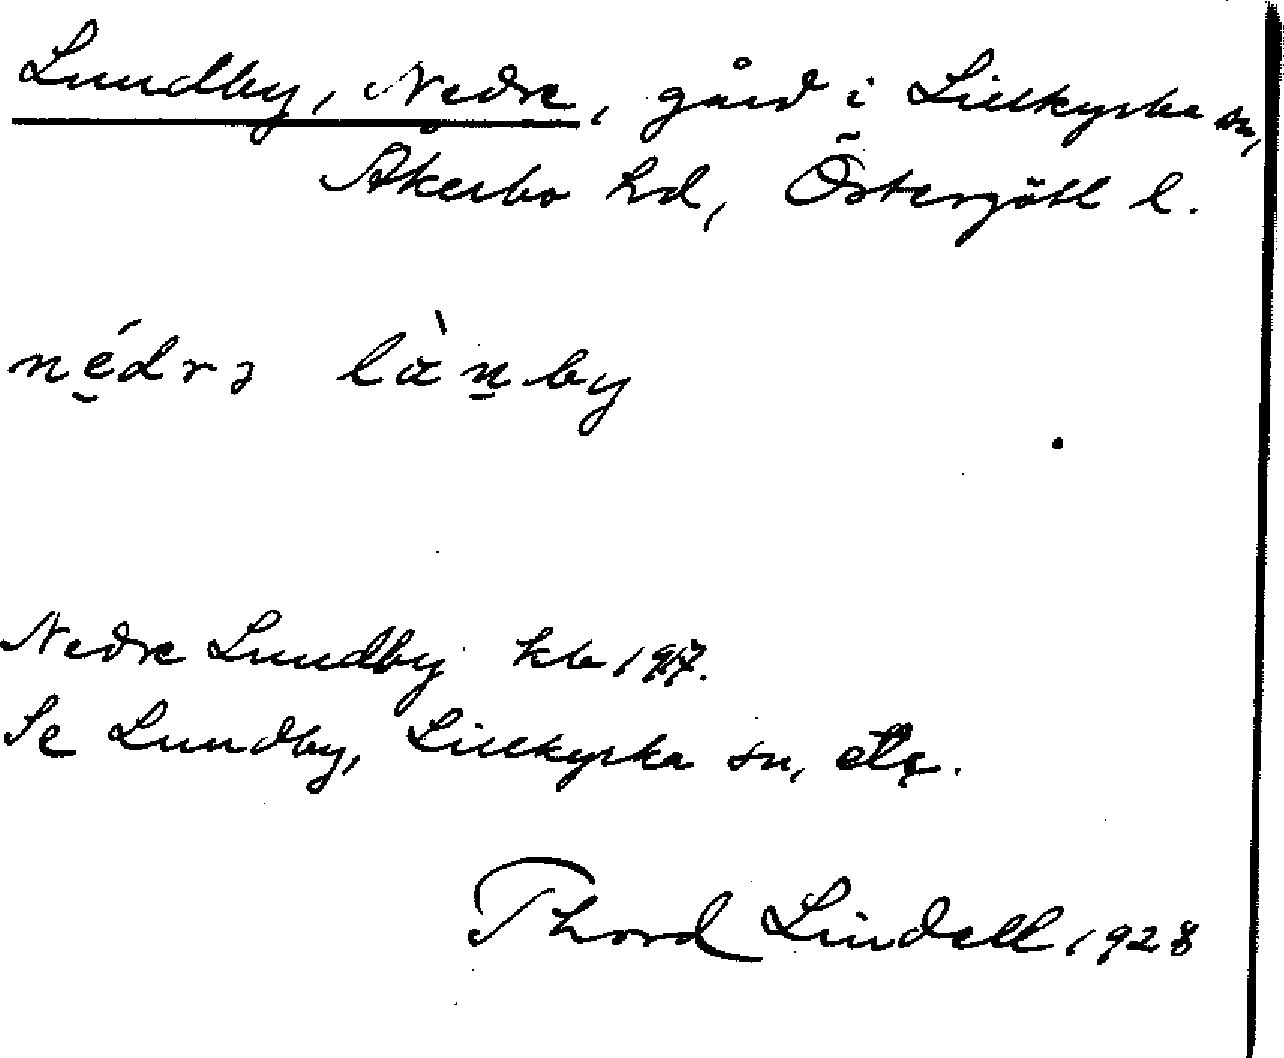 Lundby, Nedre, gård i Lillkyrka sn,
Åkerbo hd, Östergötl l.
nédrə lànby
Nedre Lundby kb 1917.
Se Lundby, Lillkyrka sn, etc.
Thord Lindell 1928